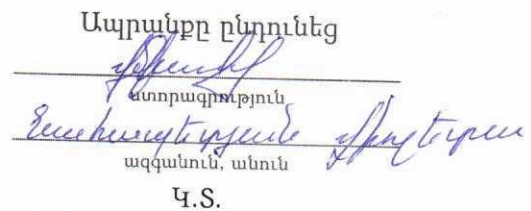 Ապրանքը ընդունեց
ստորագրություն
Նահապետյան
ազգանուն, անուն
Կ.Տ.